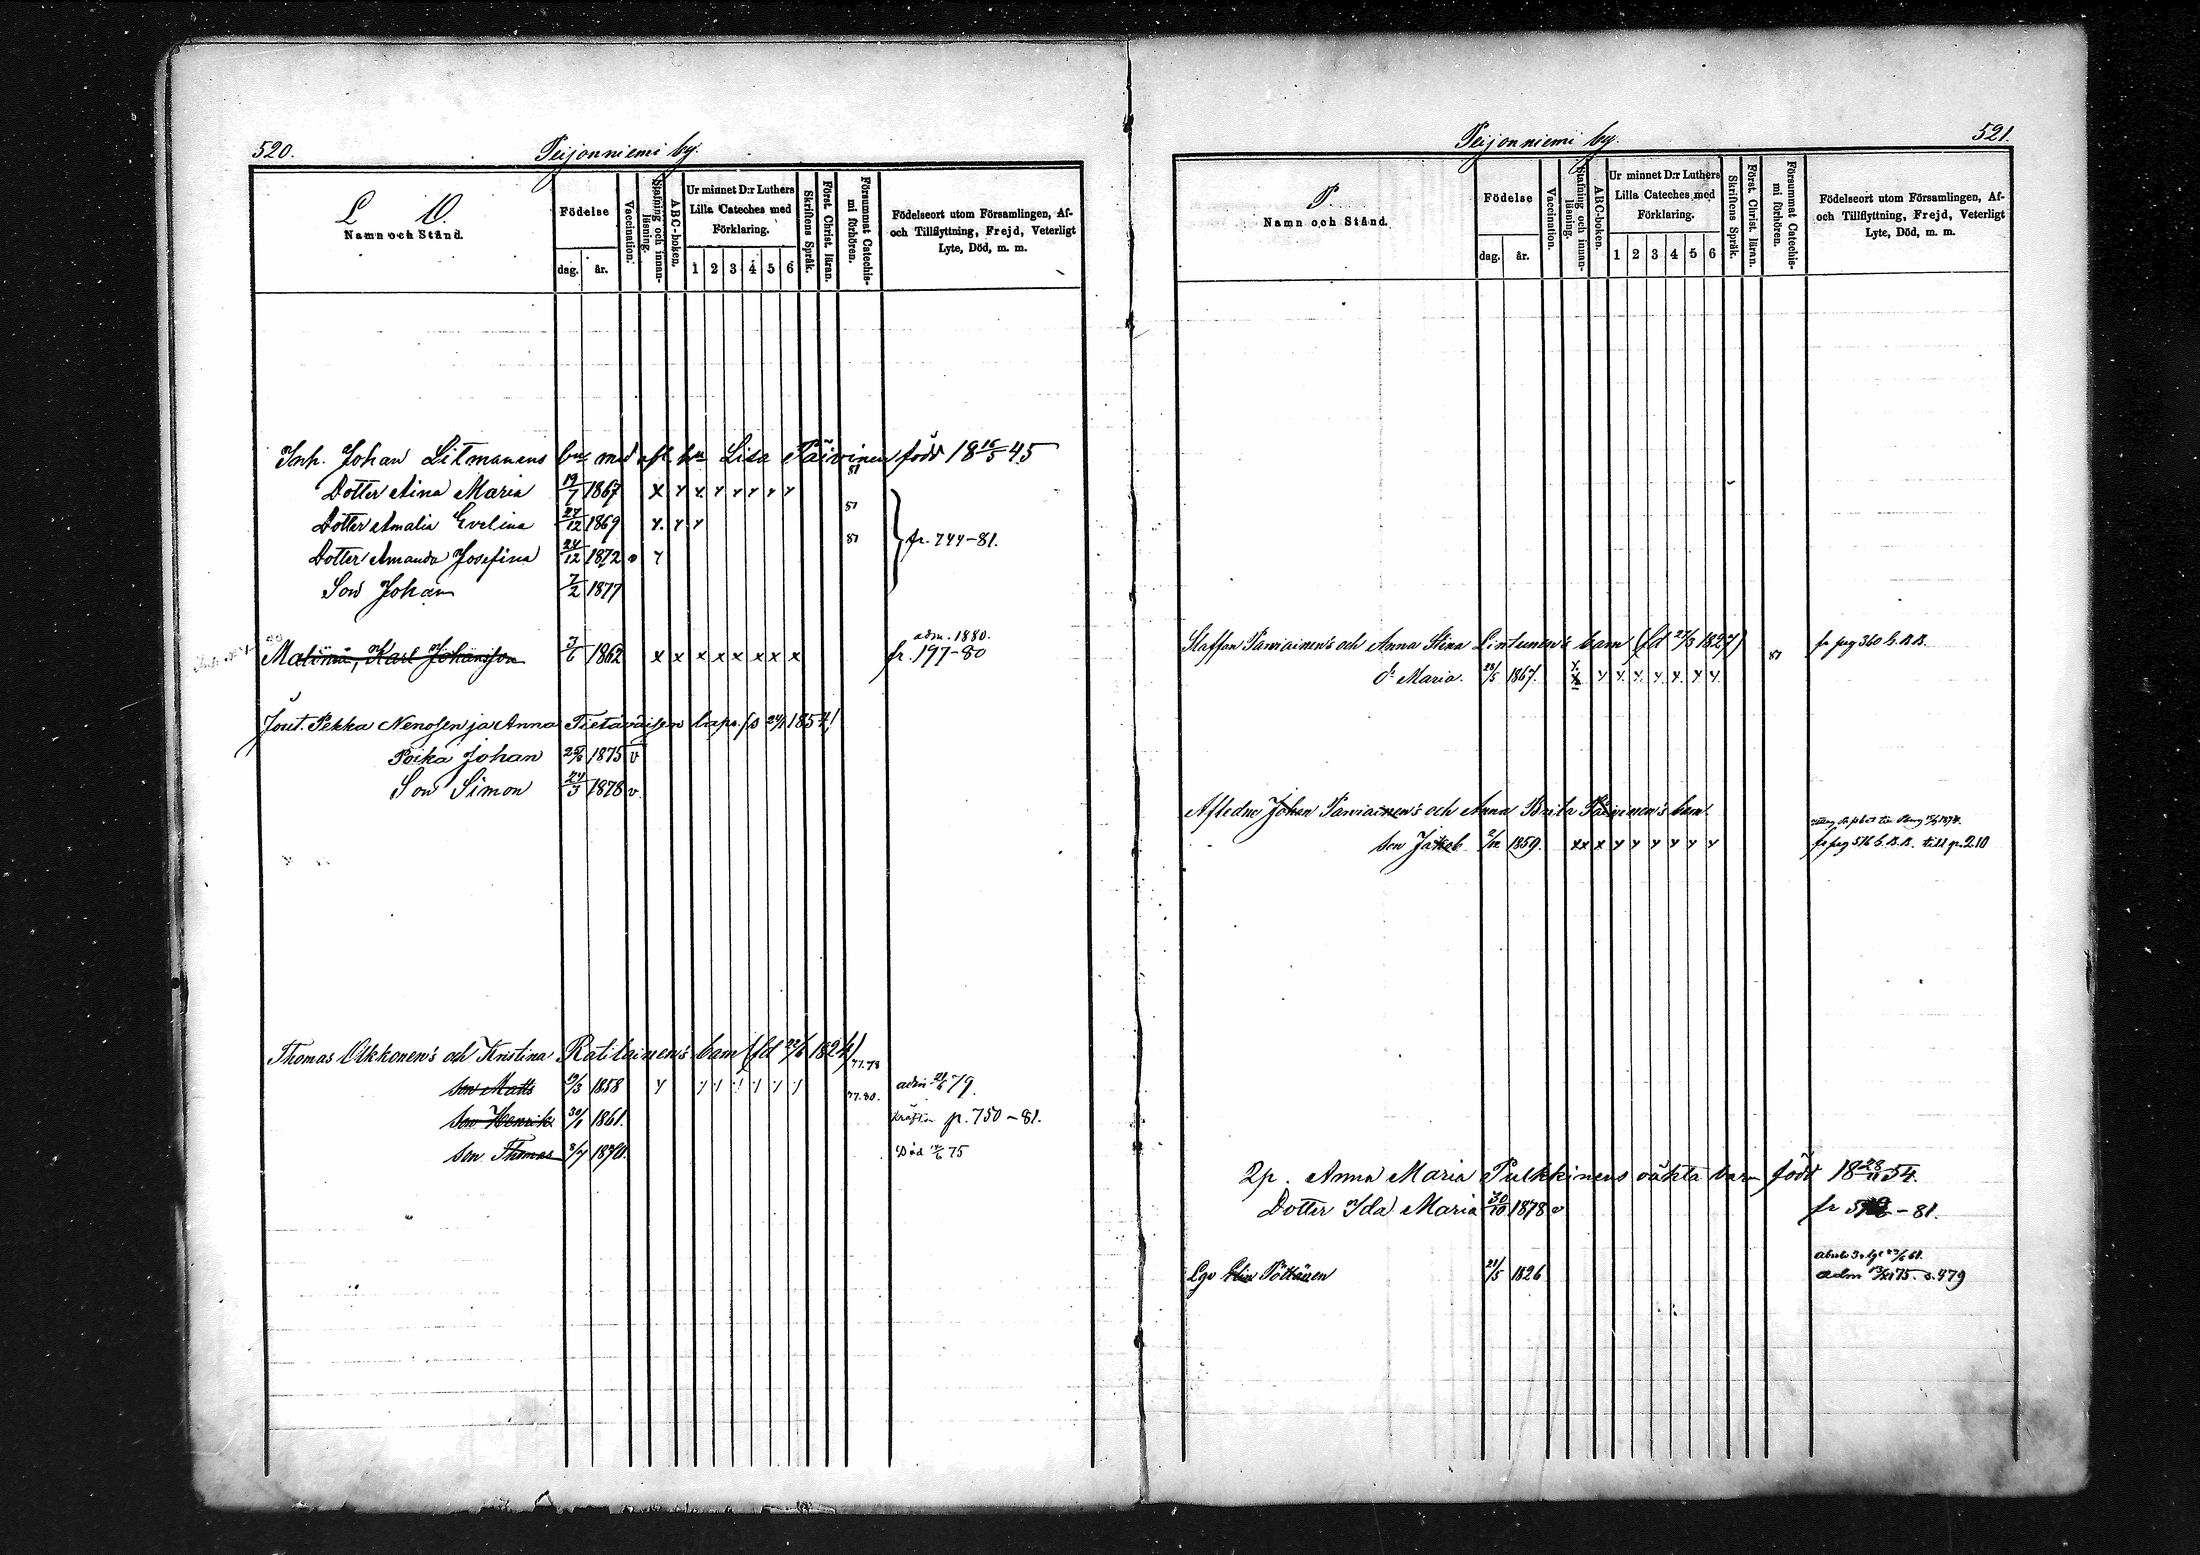 520.
Peijonniemi by.
L O.
Namn och Stånd.
Födelse
dag. år.
Vaccination.
Stafning och innan-
läsning.
ABC-boken.
Ur minnet D:r Luthers
Lilla Cateches med
Förklaring.
1 2 3 4 5 6
Skriftens Språk.
Först. Christ. läran.
Försummat Catechis-
mi förhören.
Födelseort utom Församlingen, Af-
och Tillflyttning, Frejd, Veterligt
Lyte, Död, m. m.
Inh. Johan Litmanens bn med afl. hu Lisa Päivinen född 18 15/5 45
Dotter Aina Maria 19/7 1867 x x x x x x x x 81
Dotter Amalia Evelina 24/12 1869 x x x 81
Dotter Amanda Josefina 24/12 1872 v x 81 fr. 744-81.
Son Johan 7/2 1877
Malönin, Karl Johansson 7/6 1862 x x x x x x x x adm. 1880.
fr. 197-80
Jout. Pekka Nenosen ja Anna Tietäväisen laps. (s 24/1 1854)
Poika Johan 25/6 1875 v
Son Simon 24/3 1878 v.
Thomas Okkonen's och Kristina Ratilainen's barn (fd 22/6 1824)
son Matts 19/3 1858 77.78 adm 21/6 79.
son Henrik 30/1 1861. 77.80. p. 750-81.
son Thomas 8/7 1870. Död 14/6 75
Peijonniemi by.
521.
P.
Namn och Stånd.
Födelse
dag. år.
Vaccination.
Stafning och innan-
läsning.
ABC-boken.
Ur minnet D:r Luthers
Lilla Cateches med
Förklaring.
1 2 3 4 5 6
Skriftens Språk.
Först. Christ. läran.
Försummat Catechis-
mi förhören.
Födelseort utom Församlingen, Af-
och Tillflyttning, Frejd, Veterligt
Lyte, Död, m. m.
Staffan Parviainen's och Anna Stina Lintunen's barn (fd 27/3 1827) 81 fr pag 360 h.B.B.
d:r Maria. 28/5 1867.
Afledne Johan Parviainen's och Anna Brita Päivinen's barn.
son Jakob 2/12 1859. fr pag 516 h.B.B. till p. 210
2p. Anna Maria Pulkkinens oäkta barn född 18 28/11 54.
Dotter Ida Maria 30/10 1878 v fr - 81.
Lgo Elin Pöllänen 21/5 1826
adm 13/11 75. s. 479